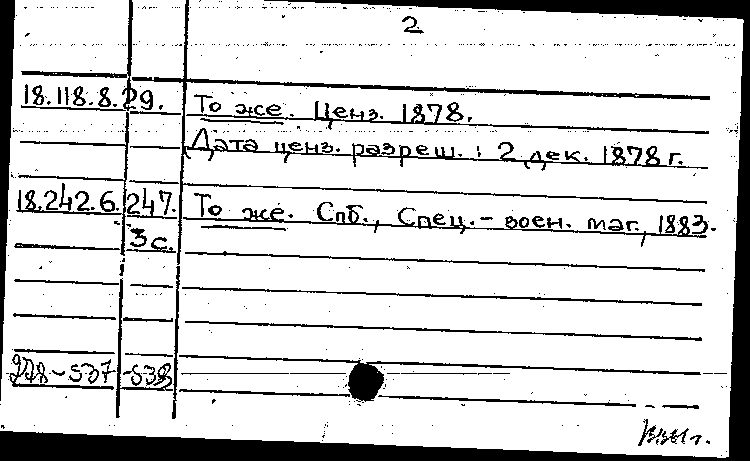 2
18.118.8.29. То же. Ценз. 1878.
Дата ценз. разреш.: 2 дек. 1878 г.
18.242.6.247. То же. Спб., Спец.-воен. маг., 1883.
3с.
278-537-538